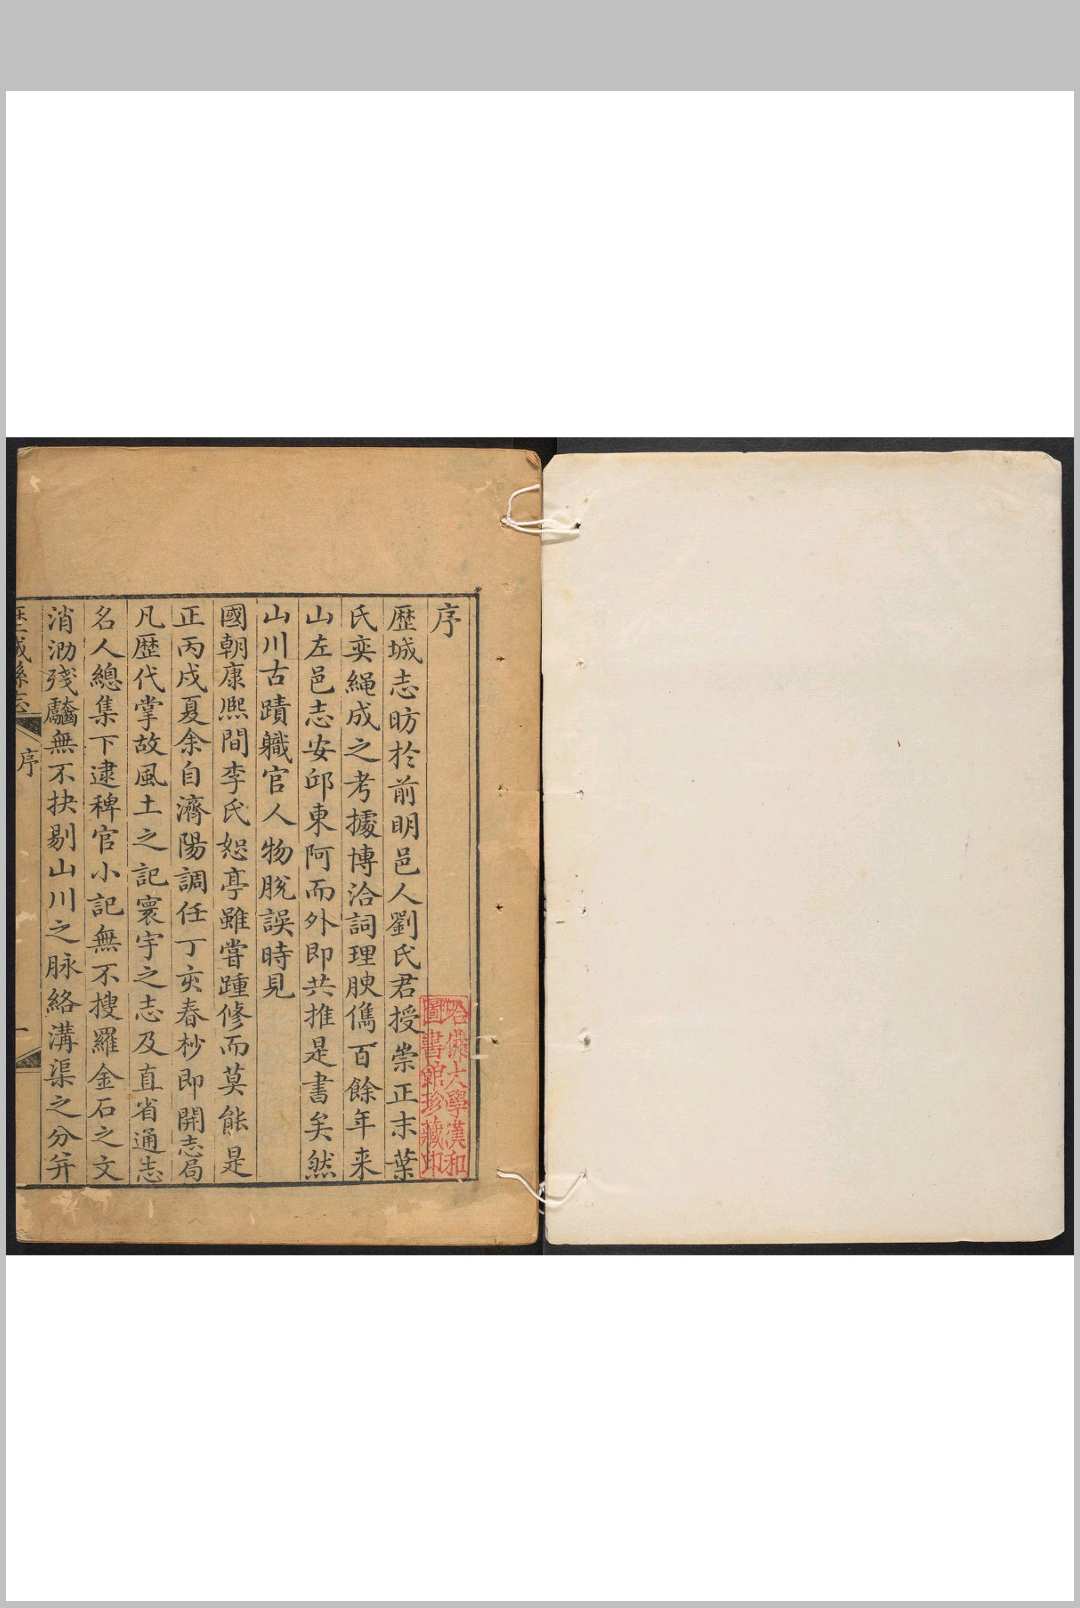 序
歴城志昉於前明邑人劉氏君授崇正末葉
氏奕繩成之考據博洽詞理腴儁百餘年来
山左邑志安邱東阿而外即共推是書矣然
山川古蹟軄官人物脫誤時見
國朝康熙間李氏恕亭雖嘗踵修而莫能是
正丙戌夏余自濟陽調任丁亥春杪即開志局
凡歴代掌故風土之記寰宇之志及直省通志
名人總集下逮稗官小記無不搜羅金石之文
消泐殘齾無不抉剔山川之脉絡溝渠之分并
歴城縣志
序
一
哈佛大學漢和
圖書館珍藏印